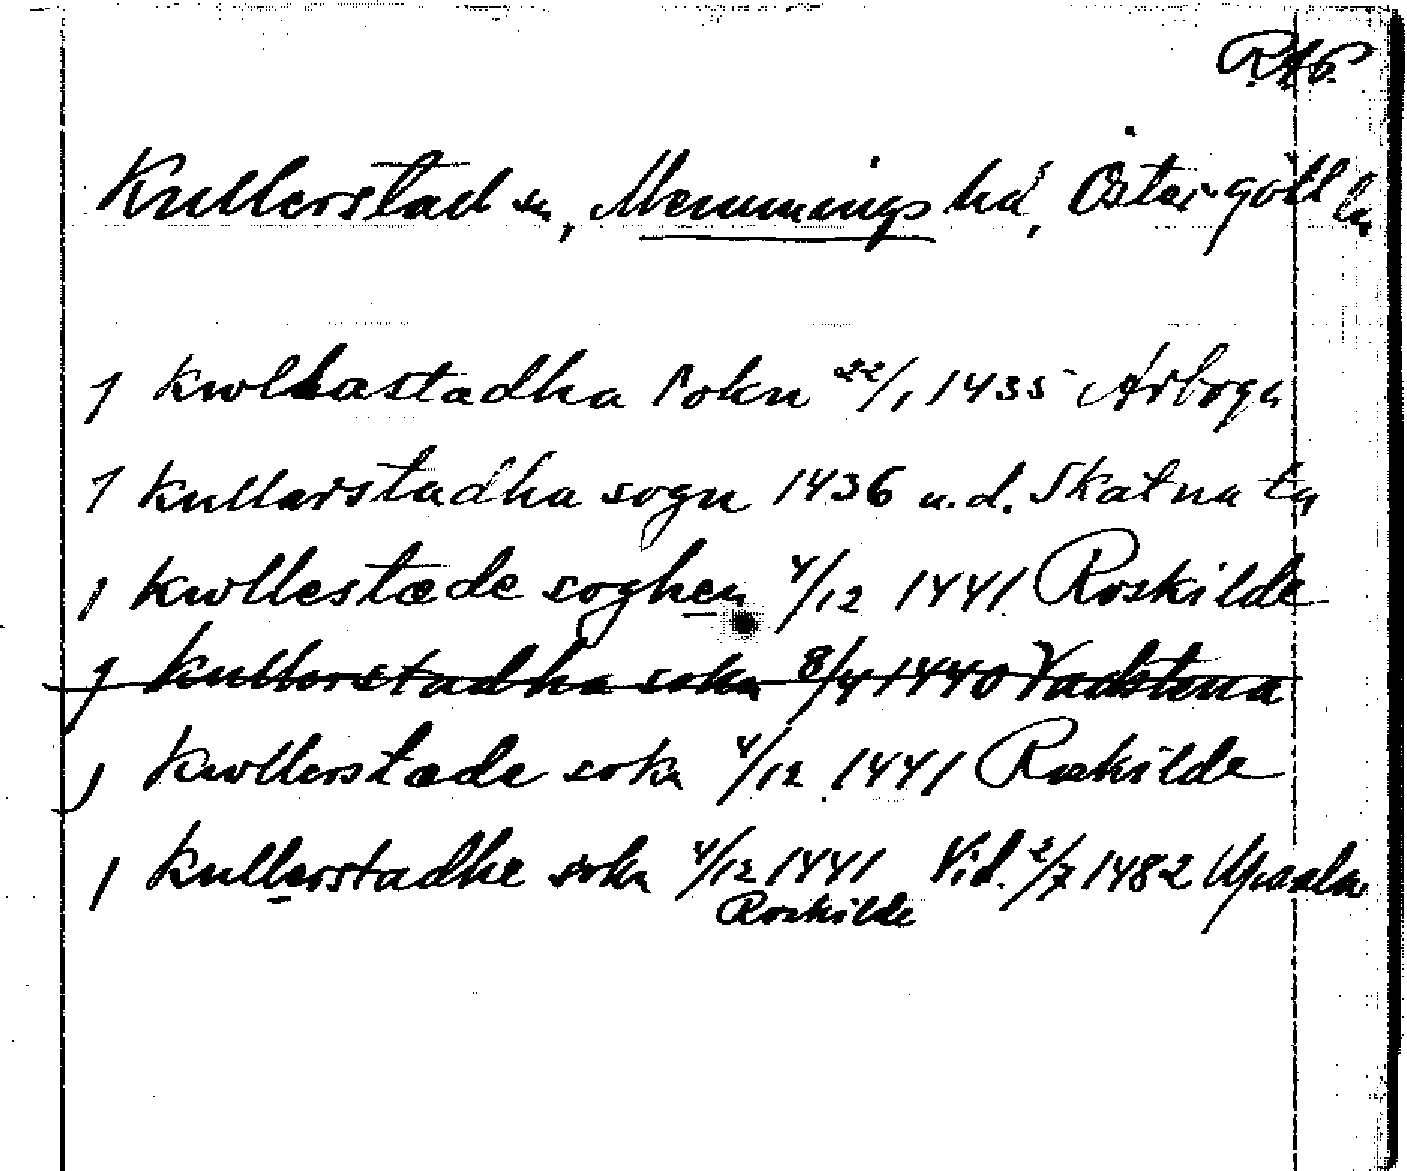 RAp.
Kullerstad sn, Memmings hd, Östergötl ln
1 kwllastadha sokn 22/1 1435 Arboga
1 kullarstadha sogn 1436 u.d. Skatna ty
1 kwllestæde soghen 4/12 1441 Roskilde
1 kullerstadha sokn 8/4 1440 Vadstena
1 kwllerstæde sokn 4/12 1441 Roskilde
1 kullerstadhe sokn 4/12 1441 Vid. 2/7 1482 Upsala
Roskilde